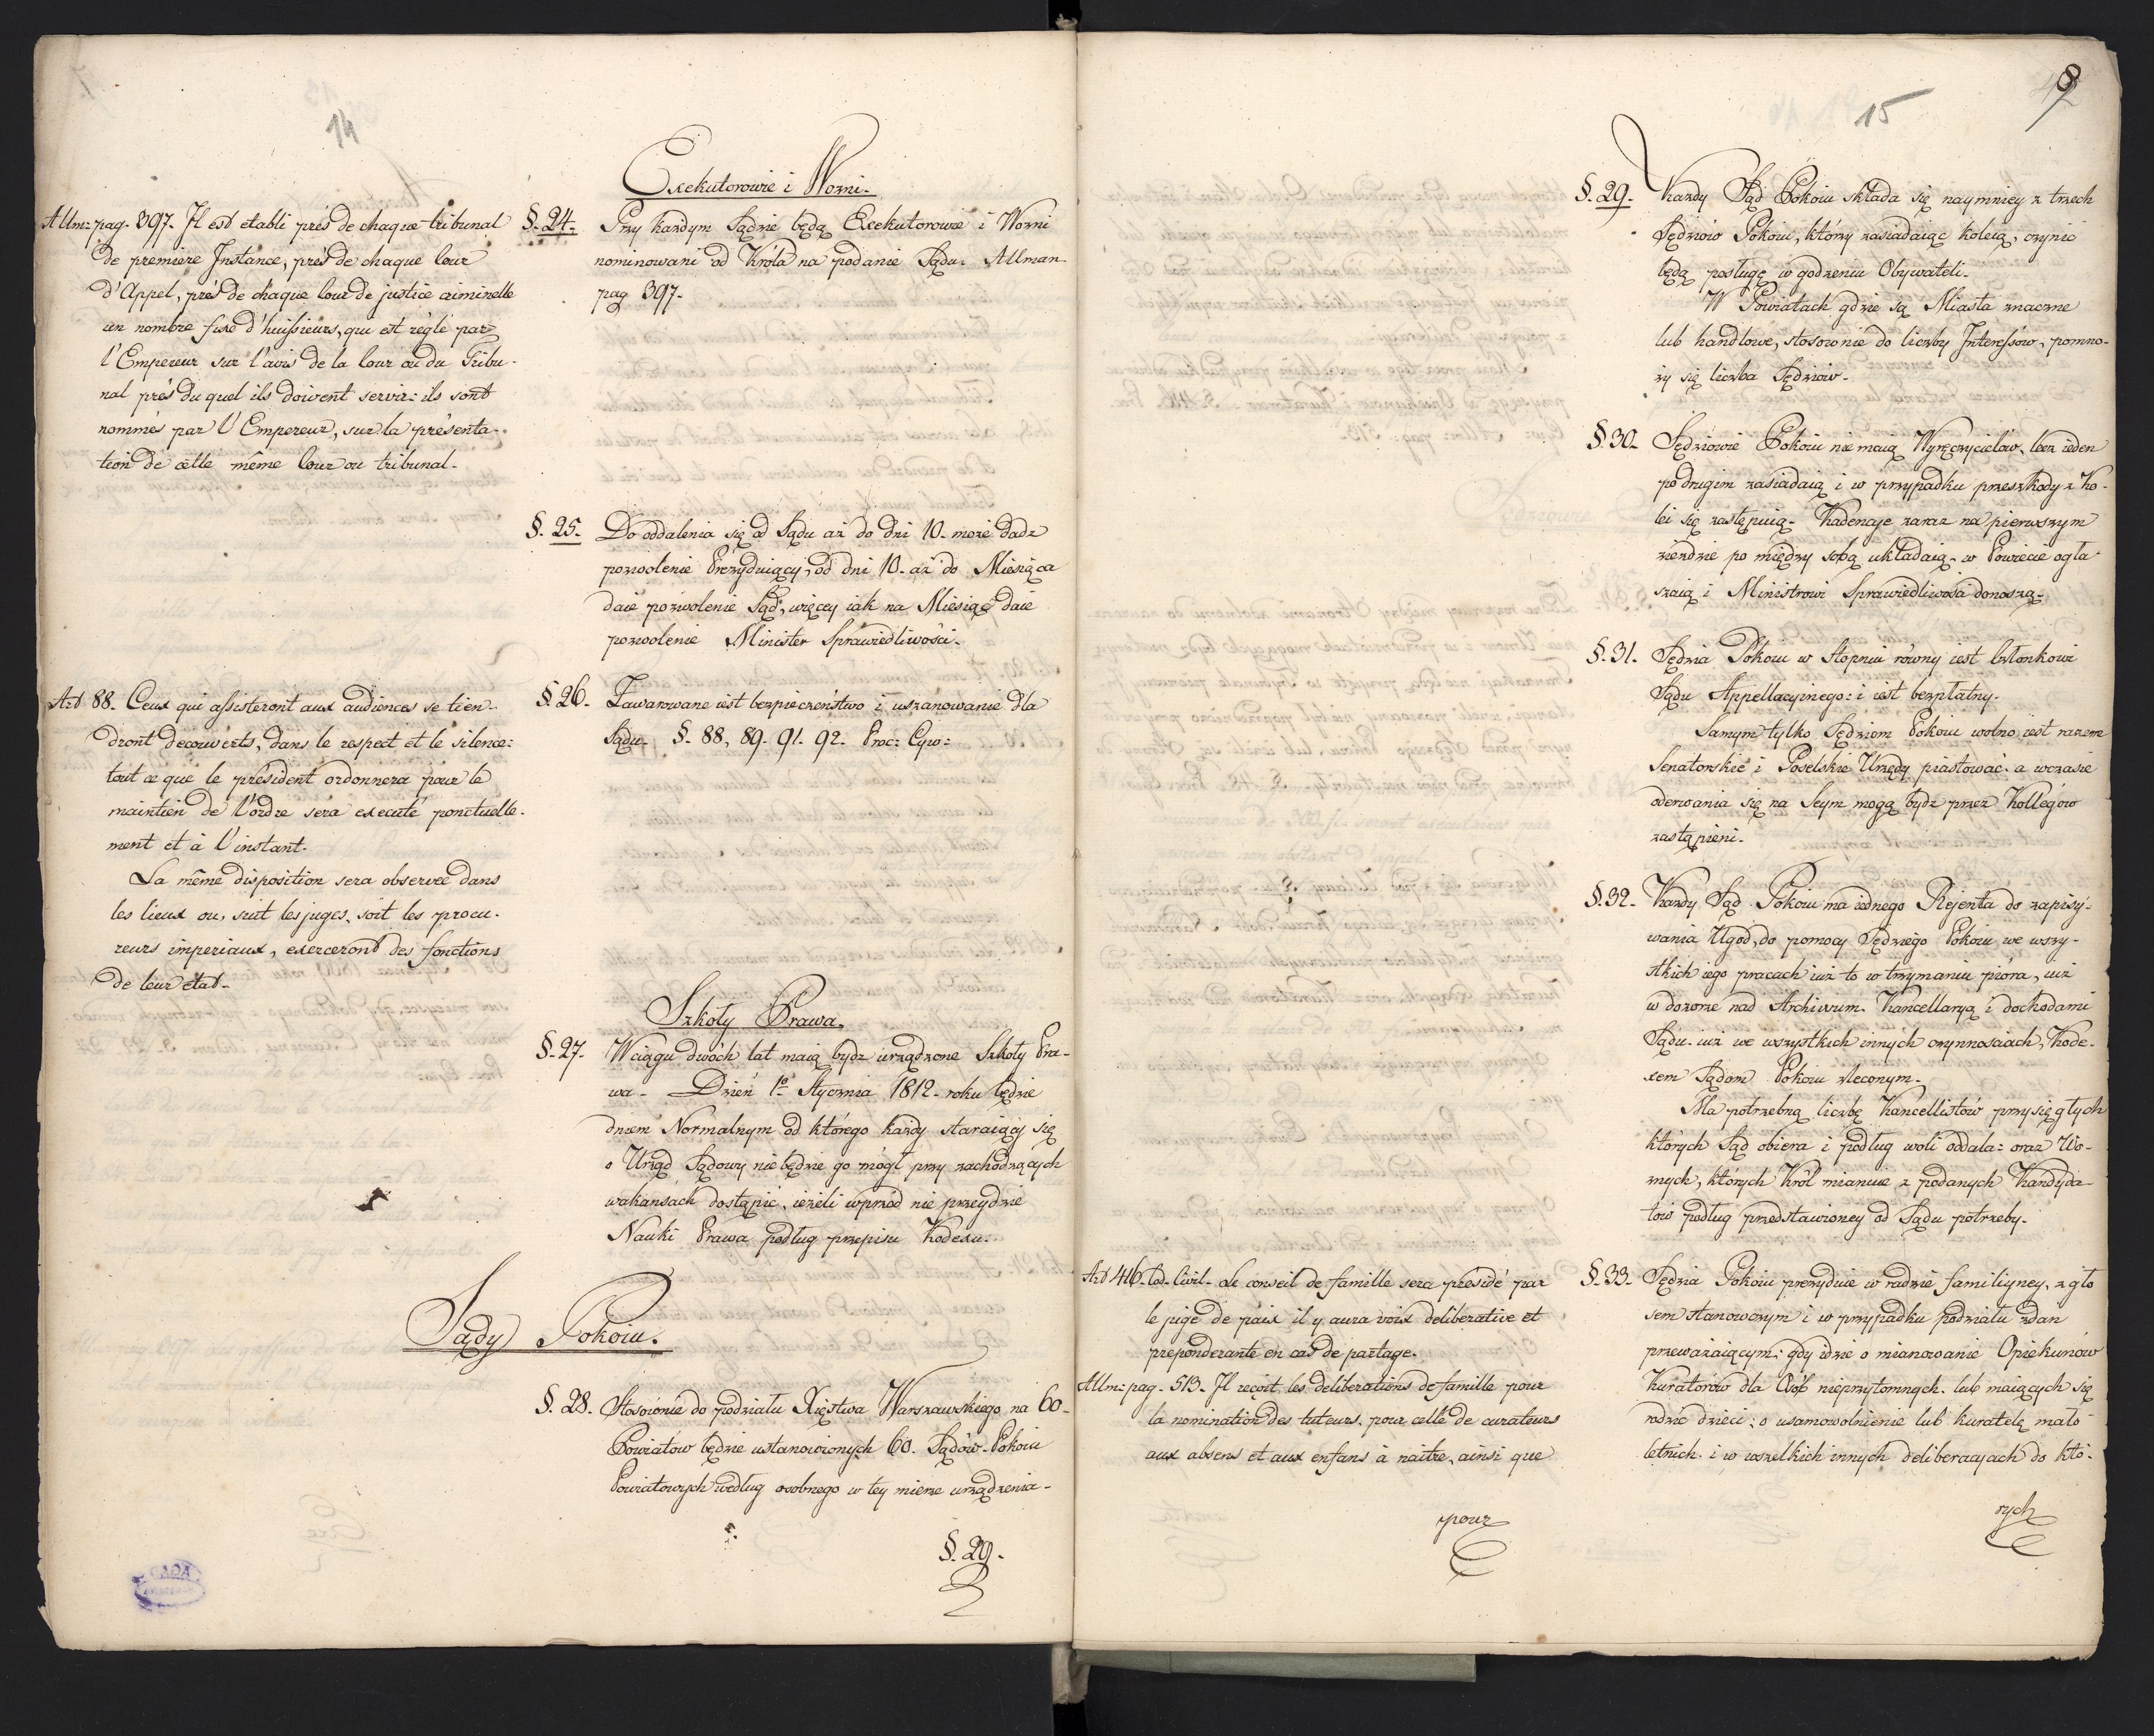 14
Allm: pag. 397. Il est etabli prés de chaque tribunal
de premiere Instance, prés de chaque Cour
d'Appel, prés de chaque Cour de justice criminelle
un nombre fixe d'huissieurs, qui est réglé par
l'Empereur sur l'avis de la Cour ou du Tribu-
nal prés du quel ils doivent servir: ils sont
nommés par l'Empereur, sur la présenta-
tion de cette même Cour ou tribunal.
Art 88. Ceux qui assisteront aux audiences se tien-
dront decouverts, dans le respect et le silence:
tout ce que le président ordonnera pour le
maintien de l'ordre sera executé ponctuelle-
ment et à l'instant.
La même disposition sera observée dans
les lieux ou, soit les juges, soit les procu-
reurs imperiaux, exerceront des fonctions
de leur état.
Exekutorowie i Wozni.
§. 24. Przy każdym Sądzie będą Exekutorowie i Wozni
nominowani od Króla na podanie Sądu. Allman.
pag 397.
§. 25. Do oddalenia się od Sądu aż do dni 10. może dadz
pozwolenie Prezyduiący, od dni 10. aż do Miesiąca
daie pozwolenie Sąd, więcey iak na Miesiąc daie
pozwolenie Minister Sprawiedliwości.
§. 26. Zawarowane iest bezpieczeństwo i uszanowanie dla
Sądu. §. 88, 89. 91. 92. Proc: Cyw:
Szkoły Prawa.
§. 27. W ciągu dwóch lat maią bydz urządzone Szkoły Pra-
wa. Dzień 1º Stycznia 1812. roku będzie
dniem Normalnym od którego każdy staraiący się
o Urząd Sądowy nie będzie go mógł przy zachodzących
wakansach dostąpić, ieżeli wprzód nie przeydzie
Nauki Prawa podług przepisu Kodexu.
Sądy Pokoiu.
§. 28. Stosownie do podziału Xięstwa Warszawskiego na 60.
Powiatów będzie ustanowionych 60. Sądów Pokoiu
Powiatowych według osobnego w tey mierze urządzenia.
§. 29.
8
15
Art 416. Cod. Civil. Le conseil de famille sera presidé par
le juge de paix il y aura voix deliberative et
préponderante en cas de partage.
Allm: pag. 513. Il reçoit les deliberations de famille pour
la nomination des tuteurs, pour celle de curateurs
aux absens et aux enfans à naitre, ainsi que
pour
§. 29. Każdy Sąd Pokoiu składa się naymniey z trzech
Sędziów Pokoiu, którzy zasiadaiąc koleią, czynić
będą posługę w godzeniu Obywateli.
W Powiatach gdzie są Miasta znaczne
lub handlowe, stosownie do liczby Interessów, pomno-
ży się liczba Sędziów.
§. 30. Sędziowie Pokoiu nie maią Wyręczycielów, lecz ieden
po drugim zasiadaią i w przypadku przeszkody z ko-
lei się zastępuią. Kadencje zaraz na pierwszym
zieździe po między sobą układaią, w Powiecie ogła-
szaią i Ministrowi Sprawiedliwości donoszą.
§. 31. Sędzia Pokoiu w stopniu równy iest Członkowi
Sądu Appellacyinego: i iest bezpłatny.
Samym tylko Sędziom Pokoiu wolno iest razem
Senatorskie i Poselskie Urzędy piastować. a w czasie
oderwania się na Seym mogą bydz przez Kollegów
zastąpieni.
§. 32. Każdy Sąd Pokoiu ma iednego Rejenta do zapisy-
wania Ugod, do pomocy Sędziego Pokoiu we wszy-
stkich iego pracach iuż to w trzymaniu pióra, iuż
w dozorze nad Archiwum. Kancellaryą i dochodami
Sądu. iuż we wszystkich innych czynnosciach, Kode-
xem Sądom Pokoiu zleconym.
Ma potrzebną liczbę Kancellistów przysięgłych
których Sąd obiera i podług woli oddala: oraz Wo-
znych, których Król mianuie z podanych Kandyda-
tów podług przedstawioney od Sądu potrzeby.
§. 33. Sędzia Pokoiu prezyduie w radzie familiyney, z gło
sem stanowczym i w przypadku podziału zdań
przeważaiącym: gdy idzie o mianowanie Opiekunów
Kuratorów dla Osób nieprzytomnych. lub maiących się
rodzić dzieci; o usamowolnienie lub kuratelę mało-
letnich. i w wszelkich innych deliberacyach do któ-
rych